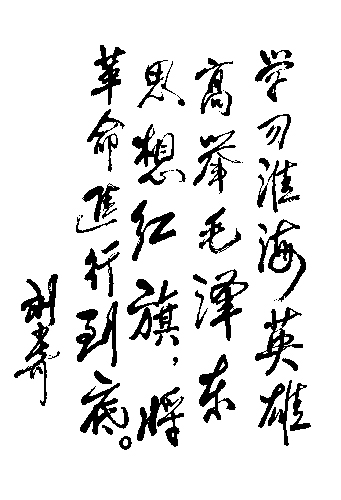 学习淮海英雄
高举毛泽东
思想红旗，将
革命進行到底。